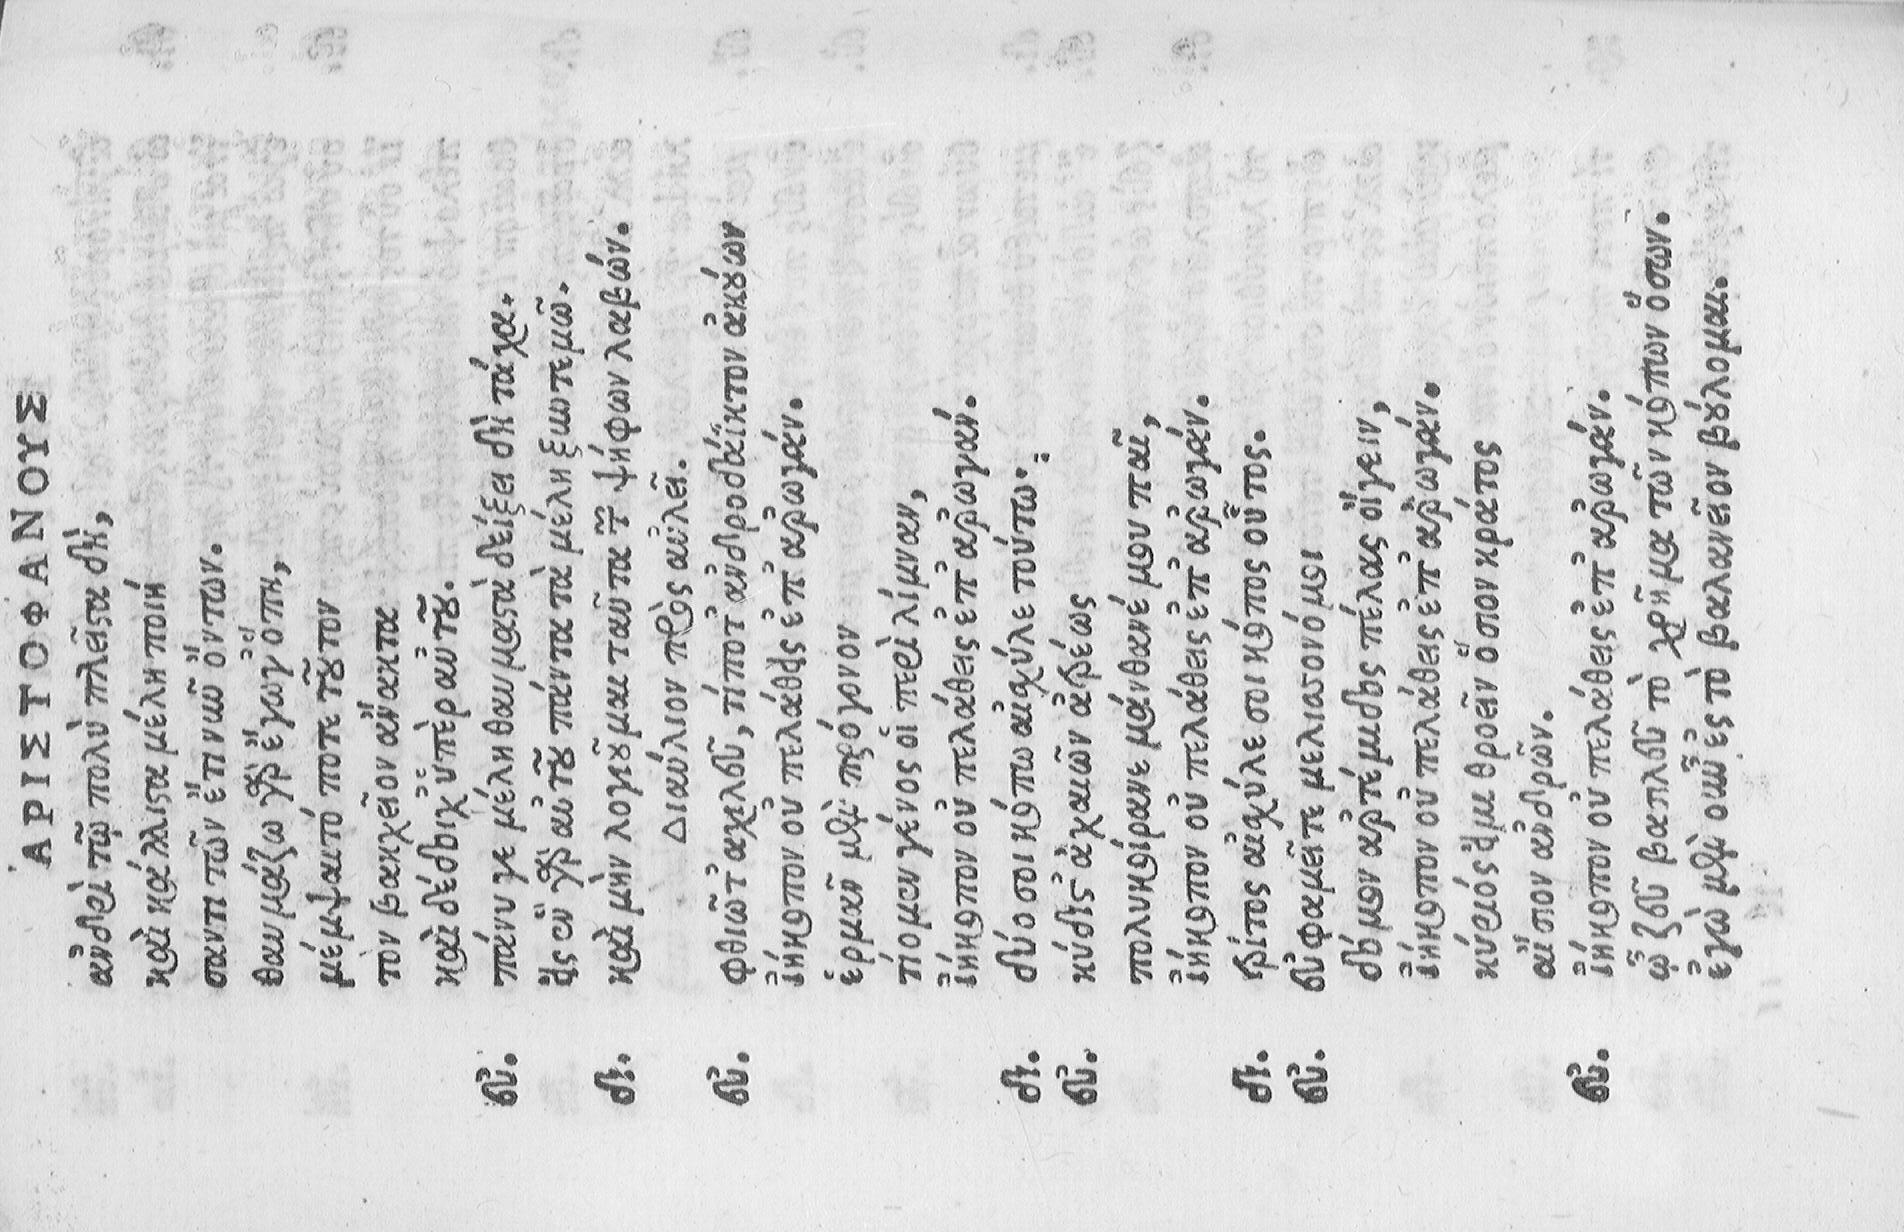 ἈΡΙΣΤΟΦΑΝΟΥΣ
ἀνδρὶ τῷ πολὺ πλεῖστα δὴ,
καὶ κάλλιστα μέλη ποιή
σαντι τῶν ἔτι νῦν ὄντων.
θαυμάζω γὰρ ἔγωγ' ὅπη,
μέμψαιτό ποτε τοῦτον
τὸν βακχεῖον ἄνακτα
καὶ δέδοιχ' ὑπὲρ αὐτοῦ.
εὐ. πάνυ γε μέλη θαυμαστὰ δείξει δὴ τάχα.
εἰς ἓν γὰρ αὐτοῦ πάντα τὰ μέλη ξυντεμῶ.
δι. καὶ μὴν λογιοῦμαι ταῦτα τῶν ψήφων λαβών.
Διαύλιον πρὸς αὐλεῖ.
εὐ. φθιῶτ' ἀχιλεῦ, τίποτ' ἀνδροδάϊκτον ἀκούων
ἰήκοπον οὐ πελάθεις ἐπ' ἀρωγάν.
ἑρμᾶν μὲν πρόγονον
τίομεν γένος οἱ περὶ λίμναν,
ἰήκοπον οὐ πελάθεις ἐπ' ἀρωγάν.
δι. δύο σοι κόπω αἰσχύλε τούτω.
εὐ. κύδιστ' ἀχαιῶν ἀτρέως
πολυκοίρανε μάνθανέ μου παῖ,
ἰήκοπον οὐ πελάθεις ἐπ' ἀρωγάν.
δι. τρίτος αἰσχύλε σοι κόπος οὗτος.
εὐ. εὐφαμεῖτε μελισσονόμοι
δόμον ἀρτέμιδος πέλας οἴγειν,
ἰήκοπον οὐ πελάθεις ἐπ' ἀρωγάν.
κύριός εἰμι θροεῖν ὅσιον κράτος
αἴσιον ἀνδρῶν.
εὐ. ἰήκοπον οὐ πελάθεις ἐπ' ἀρωγάν.
ὦ ζεῦ βασιλεῦ τὸ χρῆμα τῶν κόπων ὅσων.
ἐγὼ μὲν οὖν ἐς τὸ βαλανεῖον βούλομαι.